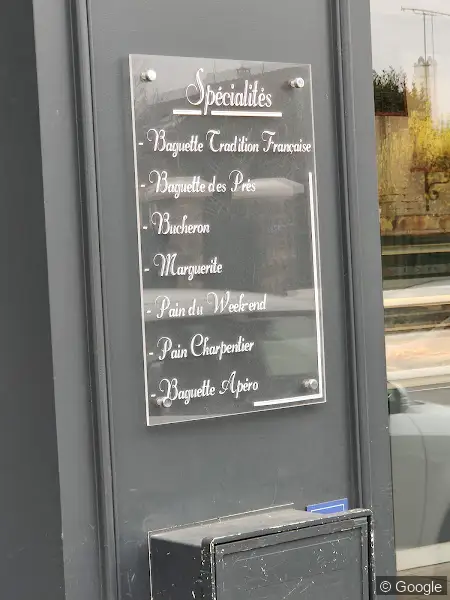 Spécialités
- Baguette Tradition Française
- Baguette des Près
- Bucheron
- Marguerite
- Pain du Week-end
- Pain Charpentier
- Baguette Apéro
© Google